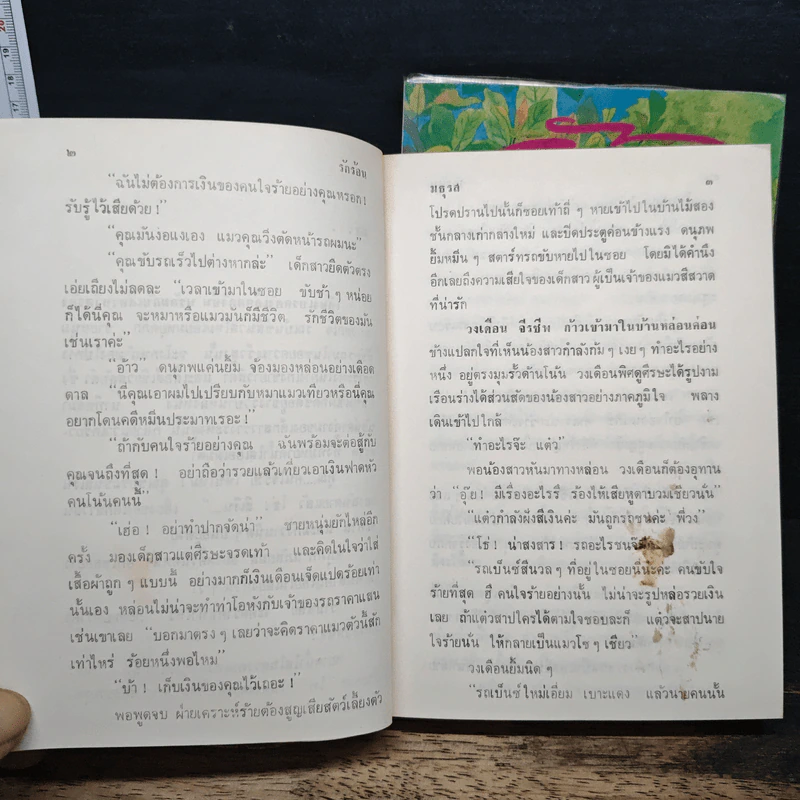 ๒
รักร้อน
“ฉันไม่ต้องการเงินของคนใจร้ายอย่างคุณหรอก!
รับรู้ไว้เสียด้วย!”
“คุณมันง่อแงเอง แมวคุณวิ่งตัดหน้ารถผมนะ”
“คุณขับรถเร็วไปต่างหากล่ะ” เด็กสาวยืดตัวตรง
เอ่ยเถียงไม่ลดละ “เวลาเข้ามาในซอย ขับช้า ๆ หน่อย
ก็ได้นี่คุณ จะหมาหรือแมวมันก็มีชีวิต รักชีวิตของมัน
เช่นเราค่ะ”
“อ้าว” ดนุภพแค่นยิ้ม จ้องมองหล่อนอย่างเดือด
ดาล “นี่คุณเอาผมไปเปรียบกับหมาแมวเทียวหรือนี่คุณ
อยากโดนคดีหมิ่นประมาทเรอะ!”
“ถ้ากับคนใจร้ายอย่างคุณ ฉันพร้อมจะต่อสู้กับ
คุณจนถึงที่สุด! อย่าถือว่ารวยแล้วเที่ยวเอาเงินฟาดหัว
คนโน้นคนนี้”
“เฮ่อ! อย่าทำปากจัดน่า” ชายหนุ่มยักไหล่อีก
ครั้ง มองเด็กสาวแต่ศีรษะจรดเท้า และคิดในใจว่าใส่
เสื้อผ้าถูก ๆ แบบนี้ อย่างมากก็เงินเดือนเจ็ดแปดร้อยเท่า
นั้นเอง หล่อนไม่น่าจะทำท่าโอหังกับเจ้าของรถราคาแสน
เช่นเขาเลย “บอกมาตรง ๆ เลยว่าจะคิดราคาแมวตัวนี้สัก
เท่าไหร่ ร้อยหนึ่งพอไหม”
“บ้า! เก็บเงินของคุณไว้เถอะ!”
พอพูดจบ ฝ่ายเคราะห์ร้ายต้องสูญเสียสัตว์เลี้ยงตัว
มธุรส
๓
โปรดปรานไปนั้นก็ซอยเท้าถี่ ๆ หายเข้าไปในบ้านไม้สอง
ชั้นกลางเก่ากลางใหม่ และปิดประตูค่อนข้างแรง ดนุภพ
ยิ้มหมิ่น ๆ สตาร์ทรถขับหายไปในซอย โดยมิได้คำนึง
อีกเลยถึงความเสียใจของเด็กสาว ผู้เป็นเจ้าของแมวสีสวาด
ที่น่ารัก
วงเดือน จีรชีพ ก้าวเข้ามาในบ้านหล่อนค่อน
ข้างแปลกใจที่เห็นน้องสาวกำลังก้ม ๆ เงย ๆ ทำอะไรอย่าง
หนึ่ง อยู่ตรงมุมรั้วด้านโน้น วงเดือนพิศดูศีรษะได้รูปงาม
เรือนร่างได้ส่วนสัดของน้องสาวอย่างภาคภูมิใจ พลาง
เดินเข้าไปใกล้
“ทำอะไรจ๊ะ แต๋ว”
พอน้องสาวหันมาทางหล่อน วงเดือนก็ต้องอุทาน
ว่า “อุ๊ย! มีเรื่องอะไรรึ ร้องไห้เสียหูตาบวมเชียวนั่น”
“แต๋วกำลังฝังสีเงินค่ะ มันถูกรถชนค่ะ พี่วง”
“โธ่! น่าสงสาร! รถอะไรชน
“รถเบ็นซ์สีนวล ๆ ที่อยู่ในซอยนี่น่ะค่ะ คนขับใจ
ร้ายที่สุด ฮึ คนใจร้ายอย่างนั้น ไม่น่าจะรูปหล่อรวยเงิน
เลย ถ้าแต๋วสาปใครได้ตามใจชอบละก็ แต๋วจะสาปนาย
ใจร้ายนั่น ให้กลายเป็นแมวโซ ๆ เชียว”
วงเดือนยิ้มนิด ๆ
“รถเบ็นซ์ใหม่เอี่ยม เบาะแดง แล้วนายคนนั้น